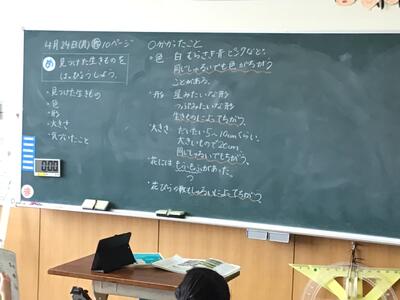 4月24日(月) 10ページ
め 見つけた生きものを
はっぴょうしよう。
・見つけた生きもの
・色
・形
・大きさ
・気づいたこと
○わかったこと
・色 白 むらさき 青 ピンクなど。
同じしゅるいでも色がちがう
ことがある。
・形 星みたいな形
つぶみたいな形
生きものによってちがう。
・大きさ だいたい5〜10cmくらい。
大きいもので20cm。
同じしゅるいでもちがう。
・花には
があった。
・花びらの数もしゅるいによってちがう。